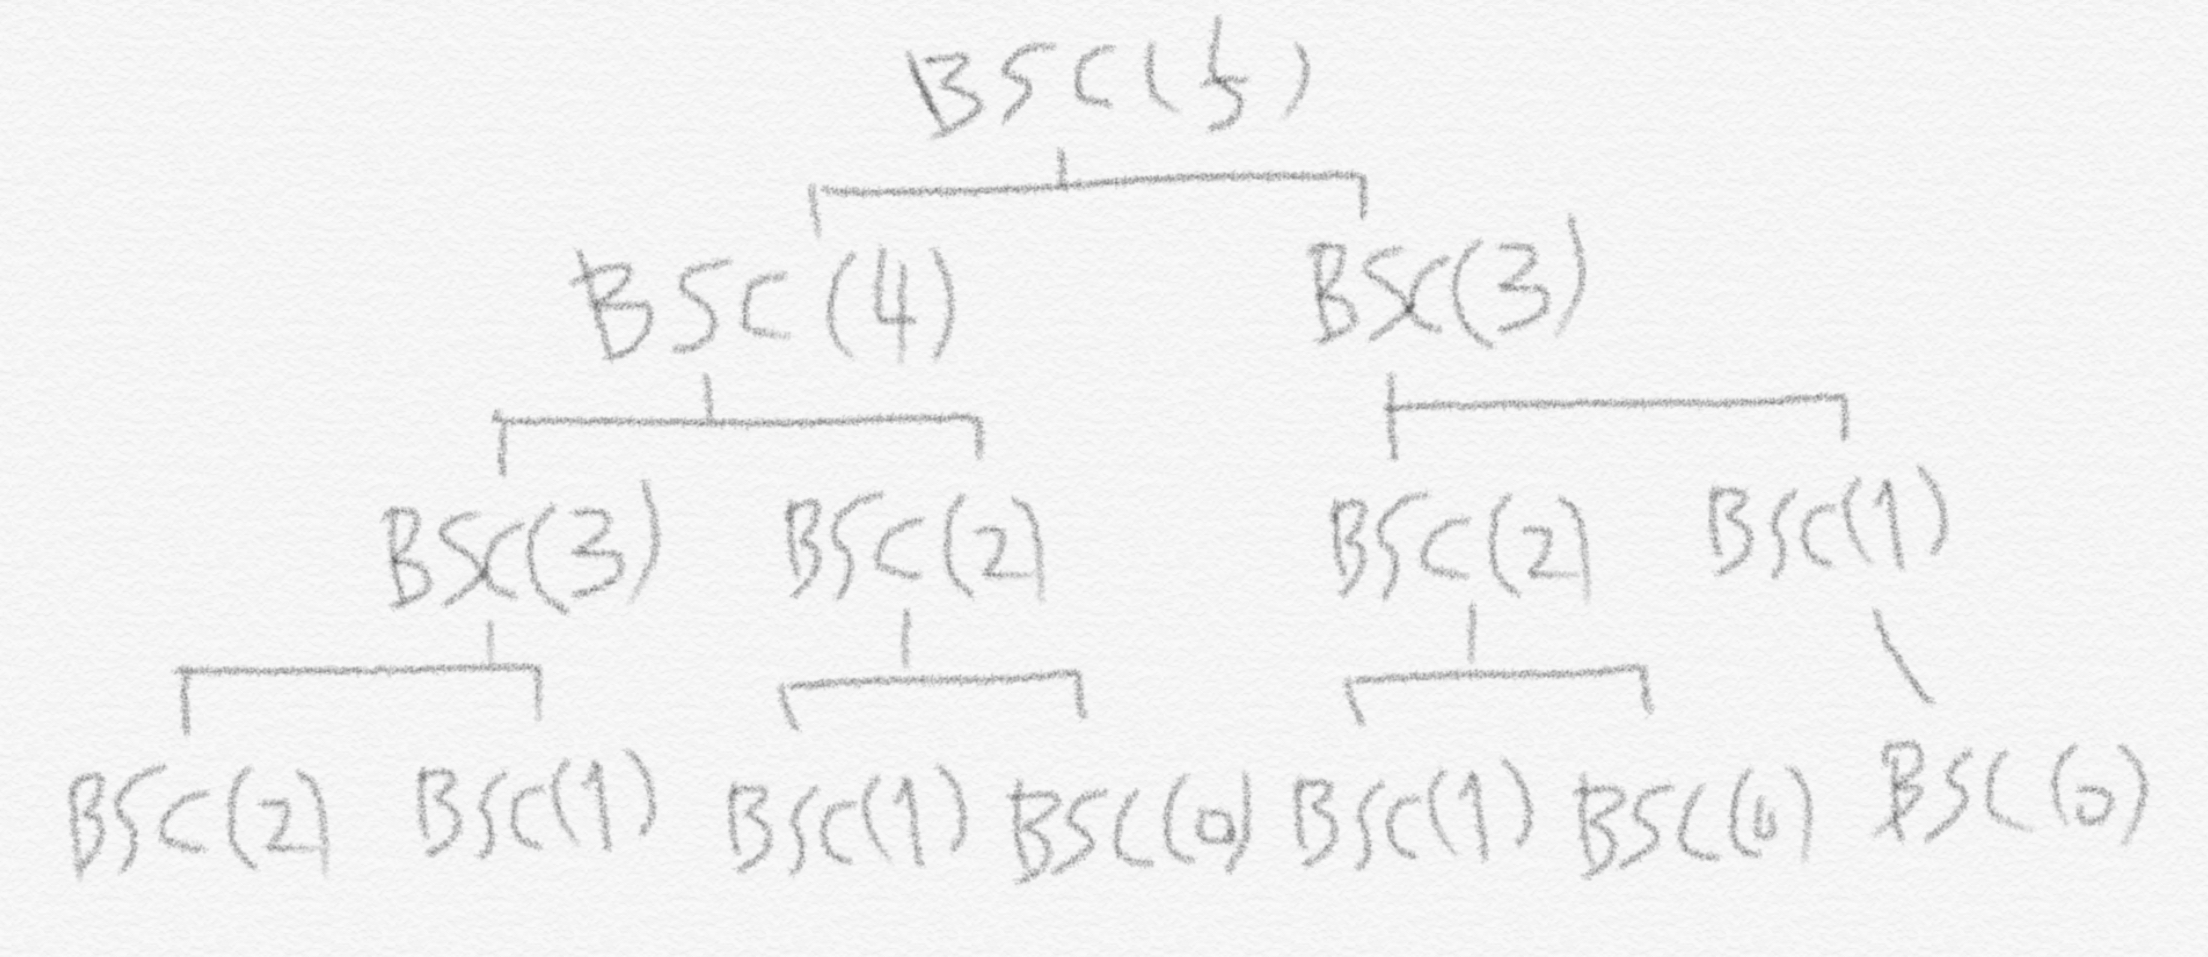 BSC(5)
BSC(4) BSC(3)
BSC(3) BSC(2) BSC(2) BSC(1)
BSC(2) BSC(1) BSC(1) BSC(0) BSC(1) BSC(0) BSC(0)